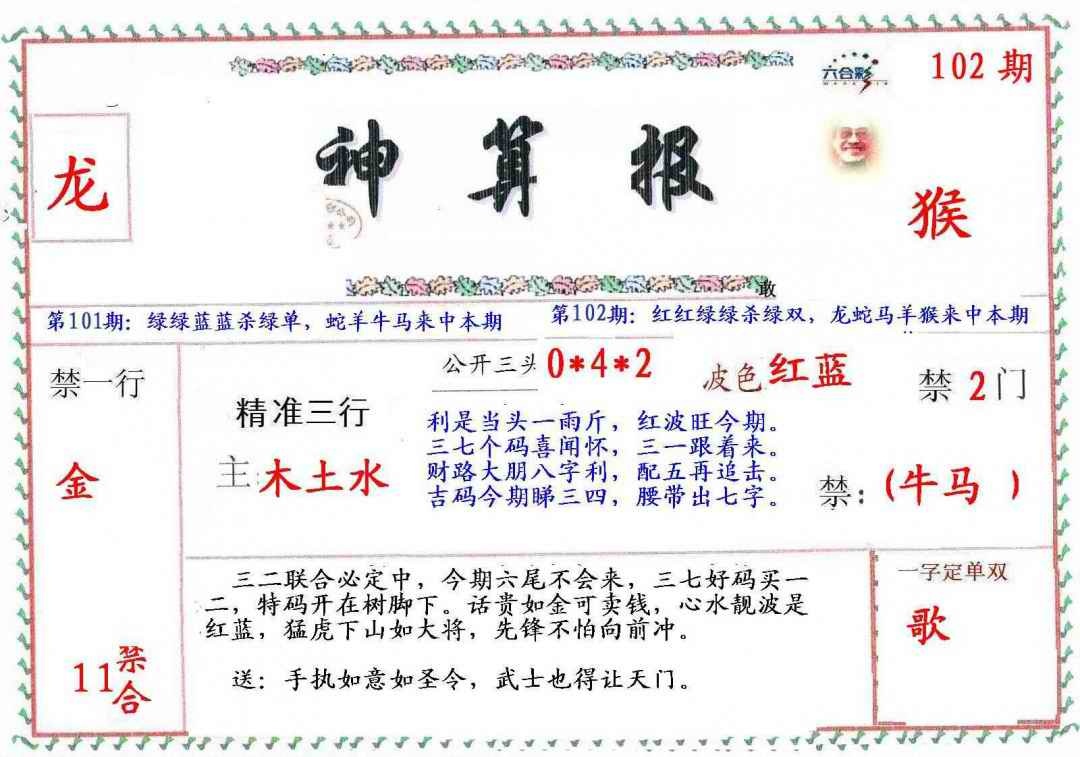 六合彩
102 期
龙
神算报
猴
敢
第101期：绿绿蓝蓝杀绿单，蛇羊牛马来中本期
第102期：红红绿绿杀绿双，龙蛇马羊猴来中本期
禁一行
金
11禁合
精准三行
主:木土水
公开三头 0*4*2
波色红蓝
利是当头一雨斤，红波旺今期。
三七个码喜闻怀，三一跟着来。
财路大朋八字利，配五再追击。
吉码今期睇三四，腰带出七字。
禁 2 门
禁：(牛马 )
三二联合必定中，今期六尾不会来，三七好码买一
二，特码开在树脚下。话贵如金可卖钱，心水靓波是
红蓝，猛虎下山如大将，先锋不怕向前冲。
送：手执如意如圣令，武士也得让天门。
一字定单双
歌